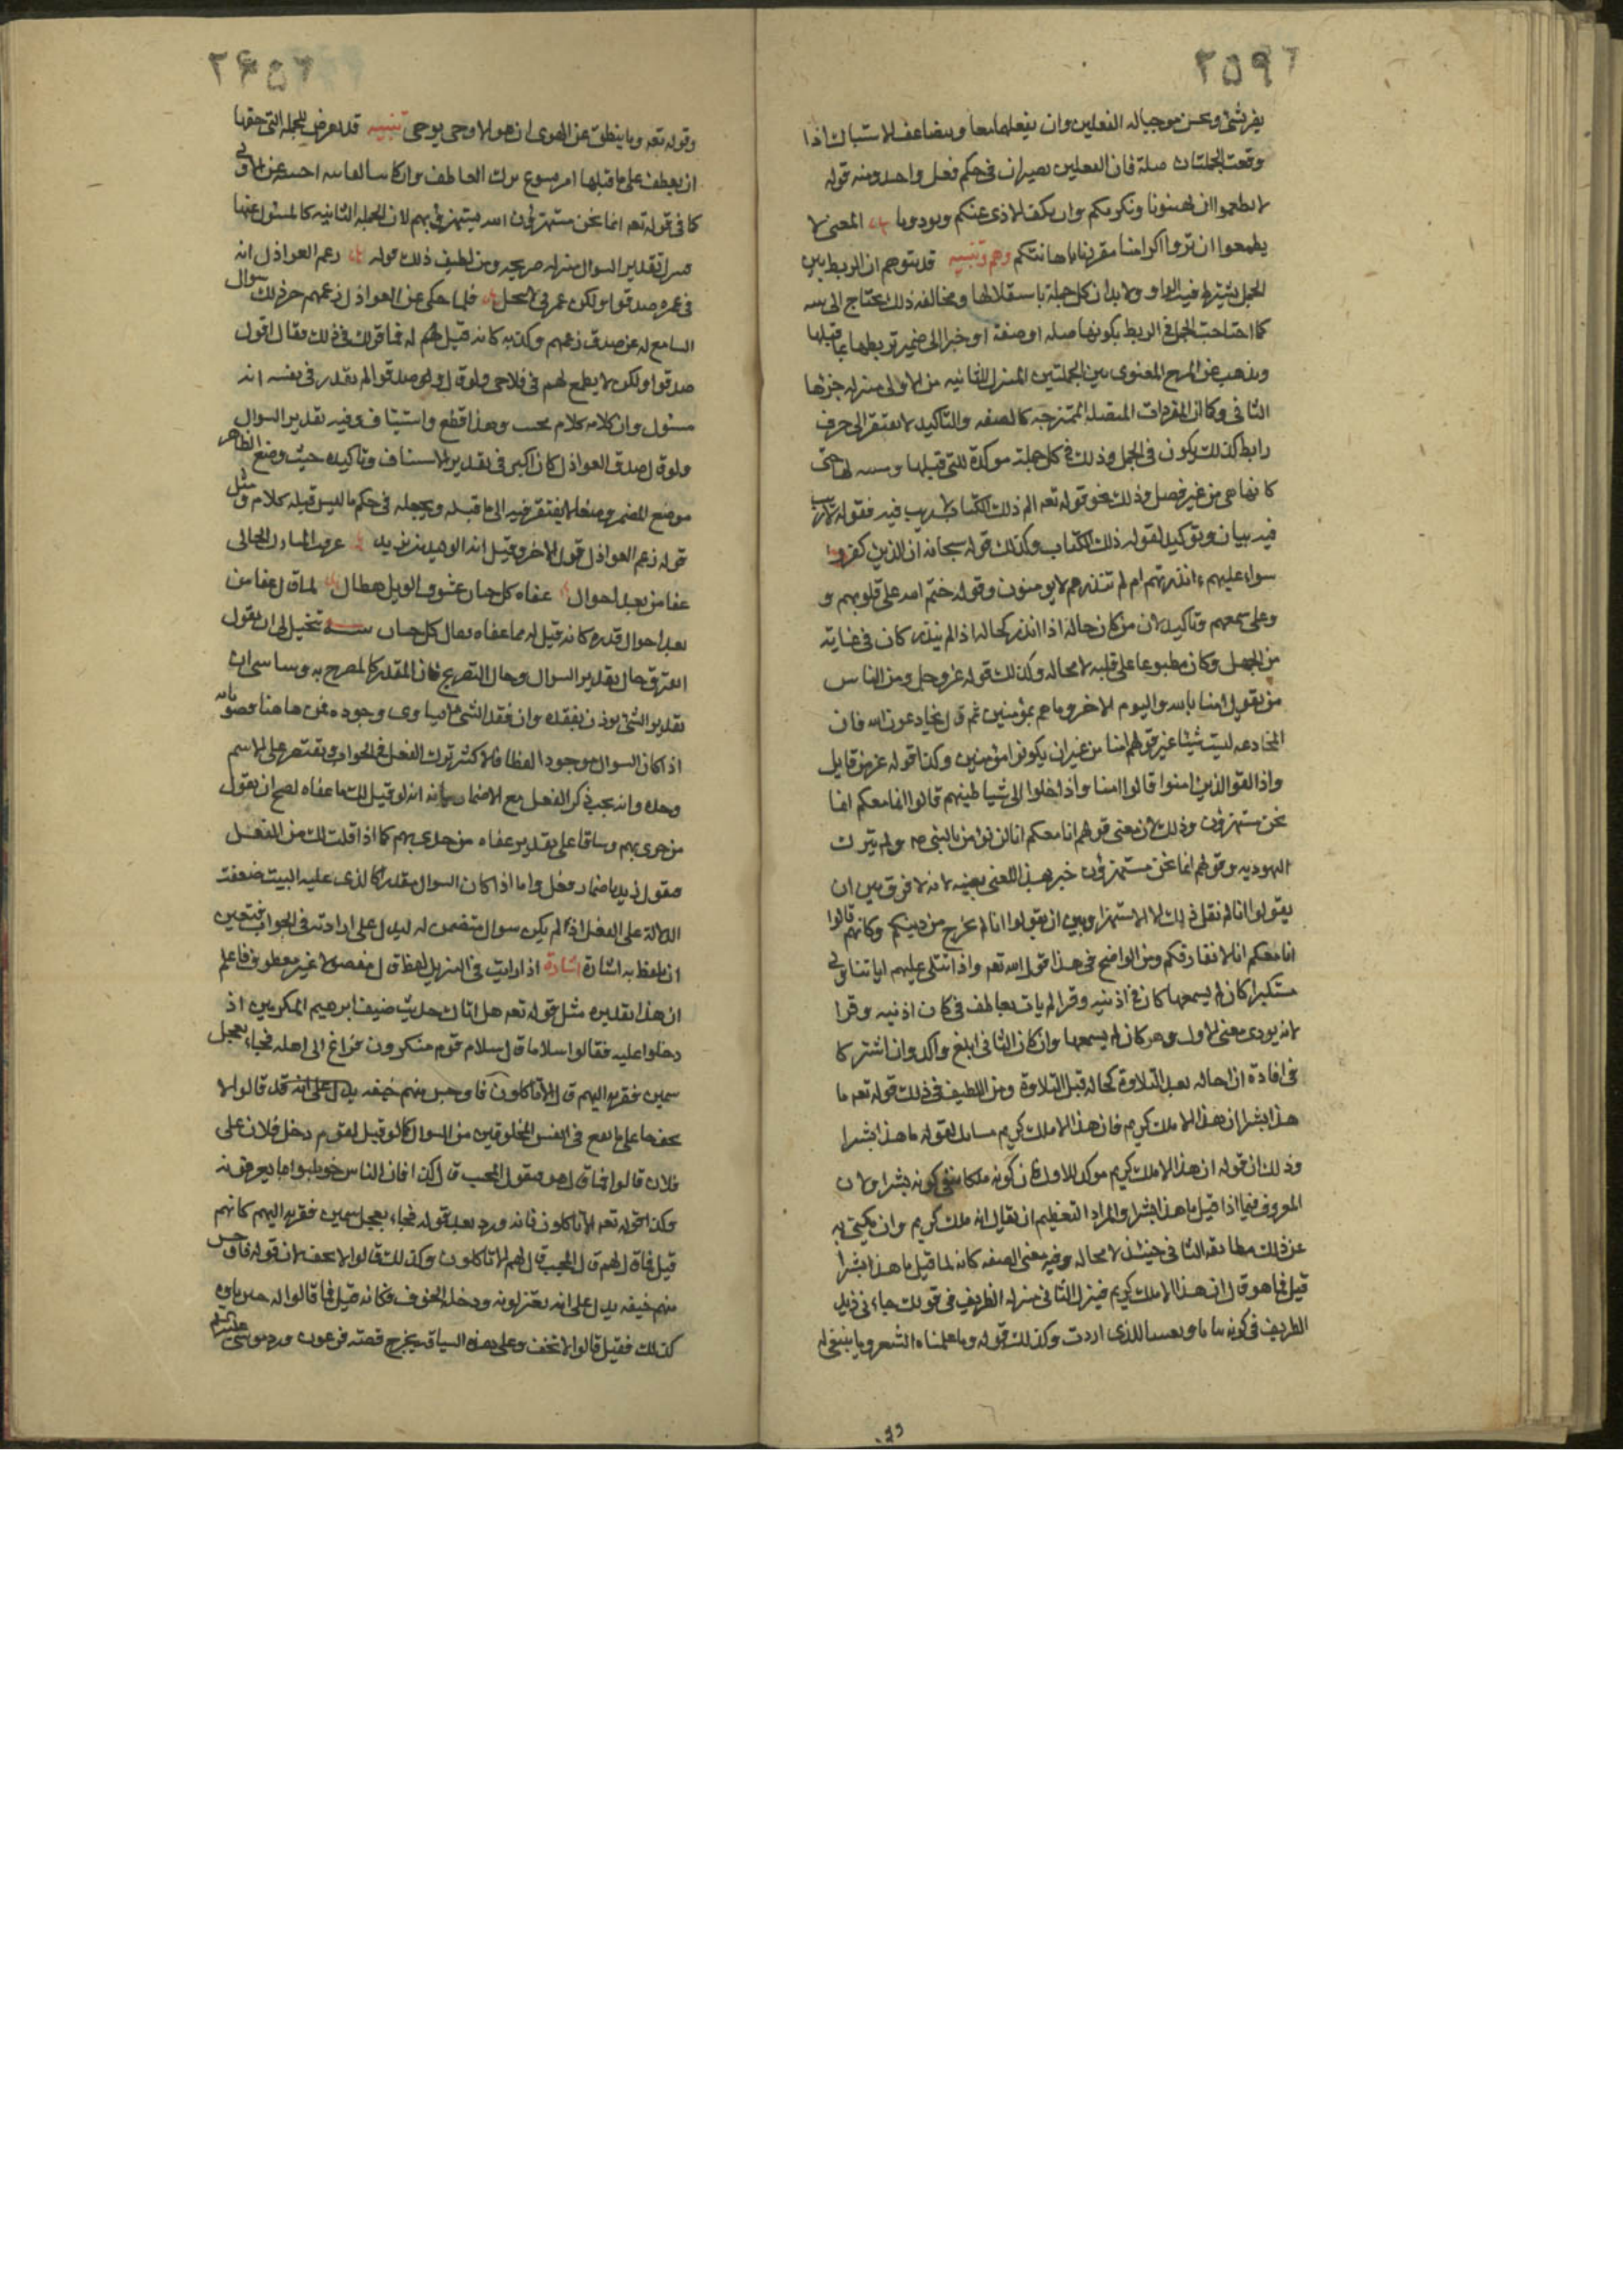 ٢٥٩
يفرشئ ويحسن موجبا له الفعلين وان يفعلهما معا ويضاعف الاشتباك اذا
وقعت الجملتان صلة فان الفعلين يصيران في حكم فعل واحد ومنه قوله
لا تطمعوا ان تهينونا ونكرمكم وان نكف الاذى عنكم وتوذونا المعنى لا
تطمعوا ان تروا اكرامنا مقرونا باهانتكم وهم وتنبيه قد يتوهم ان الربط بين
الجمل يشترط فيه الواو ولا بد ان كل جملة باستقلالها ومخالفه ذلك يحتاج الى
كما احتاجت الجمل في الربط بكونها صله او صفة او خبرا الى ضمير تربطها بما قبلها
ويذهب عن المعنوى بين الجملتين المنزل الثانيه من الاولى منزله جزئها
الثاني وكما ان المفردات المتصله الممتزجه كالصفه والتاكيد لا تفتقر الى حرف
رابط كذلك يكون في الجمل وذلك في كل جملة موكدة للتي قبلها ومبينه لها حتى
كانها هي من غير فصل وذلك نحو قوله تعه الم ذلك الكتاب لا ريب فيه فقوله لا ريب
فيه بيان وتوكيد لقوله ذلك الكتاب وكذلك قوله سبحانه ان الذين كفروا
سواء عليهم ءانذرتهم ام لم تنذرهم لا يومنون وقوله ختم الله على قلوبهم و
وعلى سمعهم وتاكيد لان من كان حاله اذا انذر كحاله اذا لم ينذر كان في غاية
من الجهل وكان مطبوعا على قلبه لا محاله وكذلك قوله عز وجل ومن الناس
من يقول امنا بالله واليوم الاخر وما هم بمؤمنين ثم قال يخادعون الله فان
المخادعه ليست شيئا غير قولهم امنا من غير ان يكونوا مؤمنين وكذا قوله عز من قايل
واذا لقوا الذين امنوا قالوا امنا واذا خلوا الى شياطينهم قالوا انا معكم انما
نحن مستهزؤن وذلك لان معنى قولهم انا معكم انا لن نومن بالنبي ص ولم نترك
اليهوديه وقولهم انما نحن مستهزؤن خبر بهذا المعنى بعينه لانه لا فرق بين ان
يقولوا انا لم نقل ذلك الا استهزا وبين ان يقولوا انا لم نخرج من دينكم وكانهم قالوا
انا معكم انا لا نفارقكم ومن الواضح في هذا قول الله تعه واذا تتلى عليهم اياتنا ولى
مستكبرا كان لم يسمعها كان في اذنيه وقرا لم يات بعاطف في كان اذنيه وقرا
لانه يودى معنى الاول وهو كان لم يسمعها وان كان الثاني ابلغ واكد وان اشتركا
في افادة ان حاله بعد التلاوة كحاله قبل التلاوة ومن اللطيف في ذلك قوله تعه ما
هذا بشرا ان هذا الا ملك كريم فان هذا الا ملك كريم لقوله ما هذا بشرا
وذلك ان قوله ان هذا الا ملك كريم موكد للاول لان كونه ملكا ينفى كونه بشرا ولان
المعروف فيما اذا قيل ما هذا بشرا والمراد التعظيم ان يقال انه ملك كريم وان يكتى به
عن ذلك مطابقه الثاني حينئذ لا محاله وفيه معنى الصفه كانه لما قيل ما هذا بشرا
قيل فما هو قال ان هذا الا ملك كريم فينزل الثاني منزله الظريف في قولك جاءني زيد
الظريف في كونه للذى اردت وكذلك قوله وما علمناه الشعر وما ينبغي له
٢٦٠
وقوله تعه وما ينطق عن الهوى ان هو الا وحى يوحى تنبيه قد يعرض للجمله التي حقها
ان يعطف على ما قبلها امر يسوغ ترك العاطف وان كانت اجنبيه عن الاولى
كما في قوله تعه انما نحن مستهزؤن الله يستهزئ بهم لان الجمله الثانيه كالمسئول عنها
فنزل تقدير السوال منزله صريحه ومن لطيف ذلك قوله زعم العواذل انه
في غمره صدقوا ولكن غمرتي لا تنجلي فلما حكى عن العواذل زعمهم حرك ذلك سوال
السامع له عن صدق زعمهم وكذبه كانه قيل لهم له فما قولك في ذلك فقال اقول
صدقوا ولكن لا يطمع لهم في فلاحى ولو قال ولو صدقوا لم يقدر في نفسه انه
مسئول وان كلامه كلام مجيب وهذا قطع واستيناف وفيه تقدير السوال
ولو قال صدق العواذل كان اكبر في تقدير الاستيناف وتاكيده حيث وضع الظاهر
موضع المضمر وضعا لا يفتقر فيه الى ما قبله ويجعله في حكم ما ليس قبله كلام ومثل
قوله زعم العواذل قول الاخر وقيل انه الوليد بن يزيد عرفت المنزل الخالى
عفا من بعد احوال عفاه كل حنان عشوف الوبل هطال لما قال عفا من
بعد احوال قدره كانه قيل له مما عفاه فقال كل حنان تخيل الى ان يقول
افترق حال تقدير السوال وحال التصريح فان المقدر كالمصرح به وساسى ان
تقدير الشئ يوذن بفقده وان فقد الشئ لا يساوى وجوده فمن هاهنا وصوابه
اذا كان السوال موجودا لفظا فالاكثر ترك الفعل في الجواب ويقتصر على الاسم
وحده وانه يجب ذكر الفعل مع الاضمار بيانه انه لو قيل لك ما عفاه لصح ان تقول
من حدى بهم وساقا على تقدير عفاه من حدى بهم كما اذا قلت لك من الفعل
فتقول زيد باضمار فعل واما اذا كان السوال مقدرا كالذى عليه البيت ضعفت
الدلالة على الفعل اذا لم يكن سوال متضمن له ليدل على ارادته في الجواب فتعين
ان يلفظ به اشارة اشارة اذا رايت في التنزيل لفظ قال مفصولا غير معطوف فاعلم
ان هذا تقديره مثل قوله تعه هل اتاك حديث ضيف ابرهيم المكرمين اذ
دخلوا عليه فقالوا سلاما قال سلام قوم منكرون فراغ الى اهله فجاء بعجل
سمين فقربه اليهم قال الا تاكلون فاوجس منهم خيفه يدل على انه قد قالوا لا
تخف على ما يقع في انفس المخلوقين من السوال كما لو قيل لقوم دخل فلان على
فلان قالوا فما قال هو فيقول المجيب قال كذا فان الناس خوطبوا بما يعرفونه
وكذا قوله تعه الا تاكلون فانه ورد بعد قوله فجاء بعجل سمين فقربه اليهم كانهم
قيل فما قال لهم قال المجيب قال لهم الا تاكلون وكذلك قالوا لا تخف لان قوله فاوجس
منهم خيفه يدل على انه بعتزلونه ودخله الخوف فكانه قيل فما قالوا له حين راوه
كذلك فقيل قالوا لا تخف وعلى هذه السياقة يخرج قصة فرعون ورد موسى عليه السلام